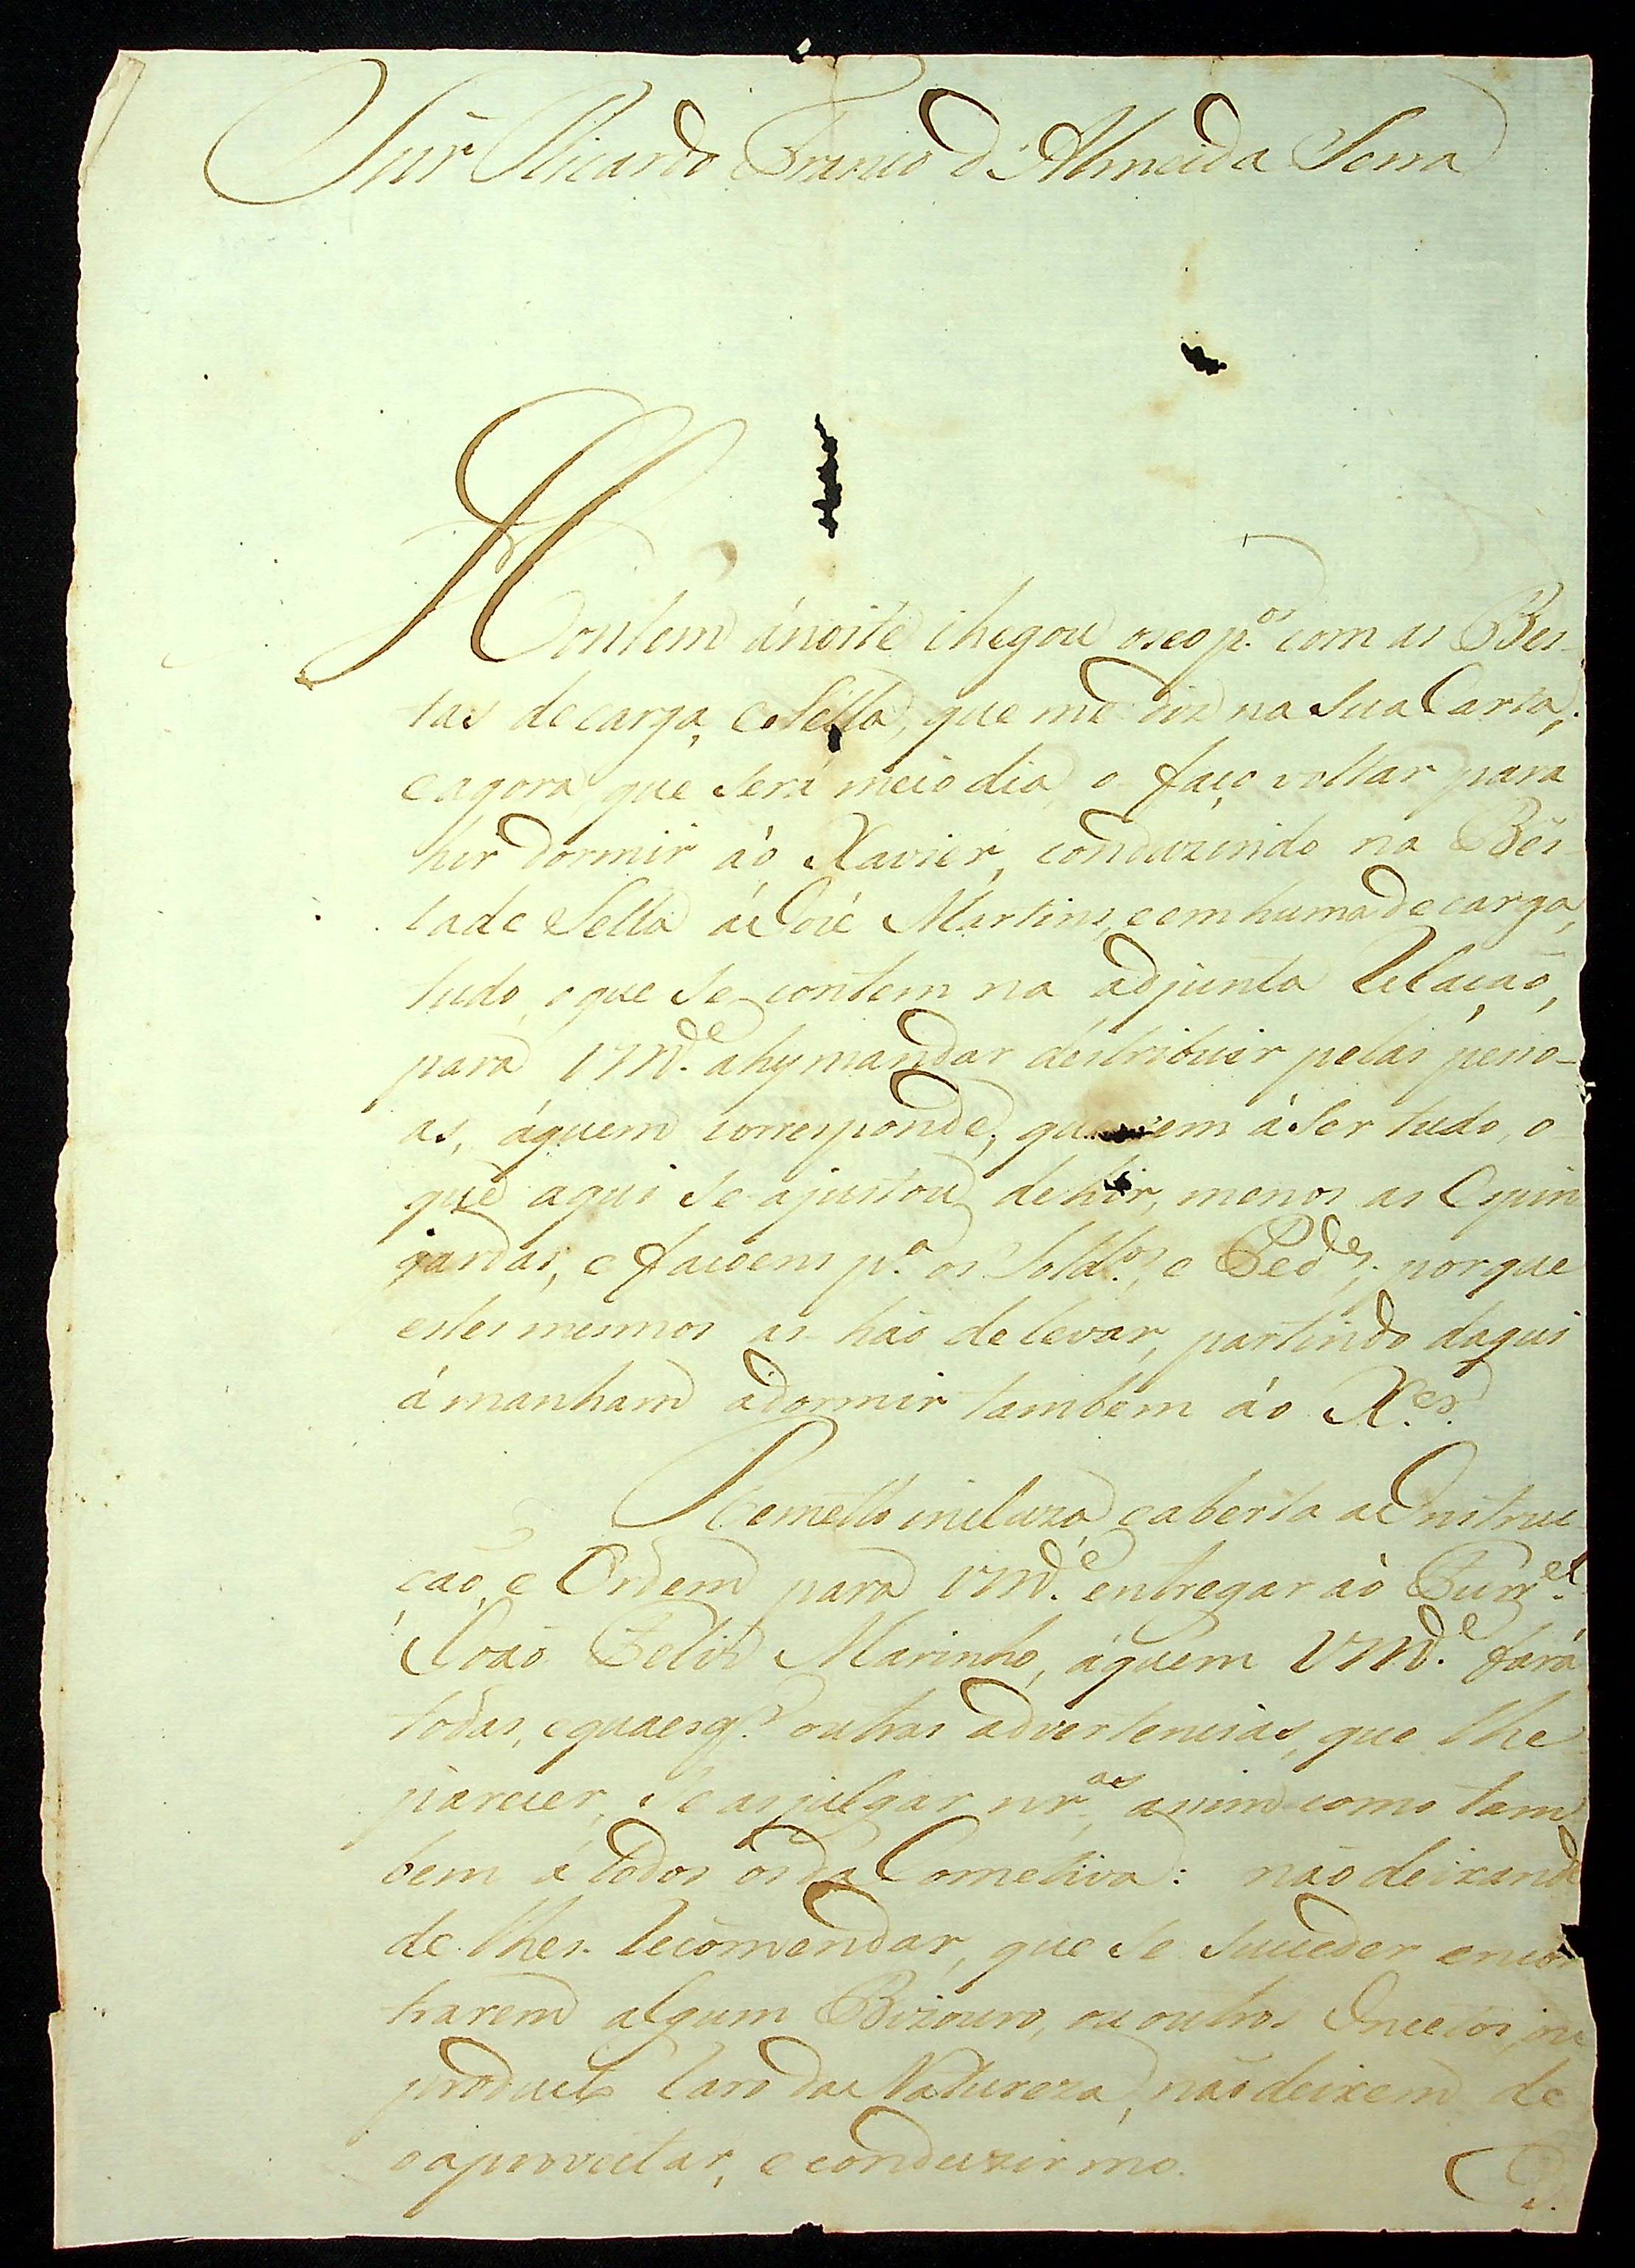 Snr̃ Ricardo Franco d'Almeida Serra
Hontem ánoite chegou oseo p.os com as Bes-
tas decarga, eSella, que me diz na sua Carta;
eagora, que será meio dia, o faço voltar para
hir dormir áo Xavier, conduzindo na Bes-
tade Sella áJozé Martins, eem huma de carga,
tudo, oque se contem na adjunta Relaçaõ,
para VM.ce ahy mandar destribuir pelas peso-
as, áquem corresponde; que vem áser tudo, o
que aqui se ajustou dehir, menos as Espin
gardas, e facoens p.a os Sold.os, e Ped.es; porque
estes mesmos as haõ delevar, partindo daqui
ámanham adormir tambem áo X.er
Remetto incluza, eaberta aInstruc
çaõ, e Ordem para VM.ce entregar áo Furr.el
Joaõ Felix Marinho, áquem VM.ce fará
todas, equaesq.r outras advertencias, que lhe
parecer, seasjulgar nr.as, assim como tam
bem á todos osda Cometiva: naõ deixando
de lhes recomendar, que se succeder encon
trarem algum Bizouro, ou outros Incetos, ou
producto raro da Natureza, naõ deixem de
oaproveitar, econduzirmo.